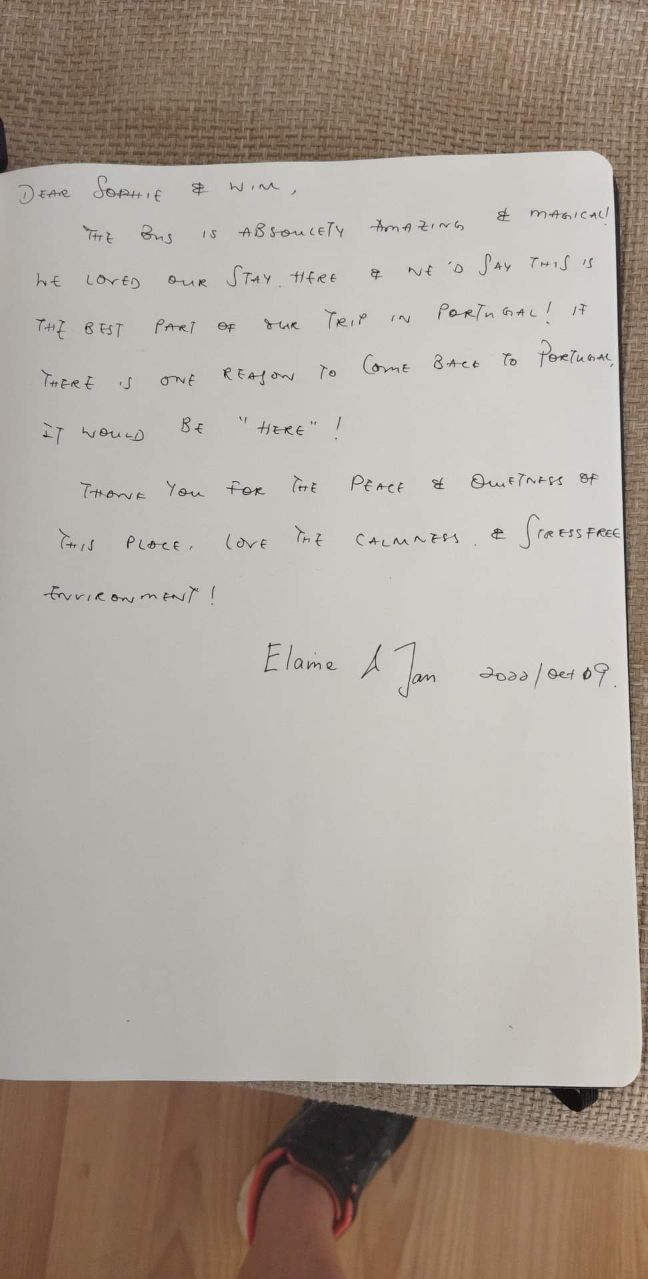 DEAR SOPHIE & WIM,
THE BUS IS ABSOULETY AMAZING & MAGICAL!
WE LOVED OUR STAY HERE & WE'D SAY THIS IS
THE BEST PART OF OUR TRIP IN PORTUGAL! IF
THERE IS ONE REASON TO COME BACK TO PORTUGAL,
IT WOULD BE "HERE"!
THANK YOU FOR THE PEACE & QUIETNESS OF
THIS PLACE, LOVE THE CALMNESS & STRESSFREE
ENVIRONMENT!
Elaine & Jan 2022/Oct 09.